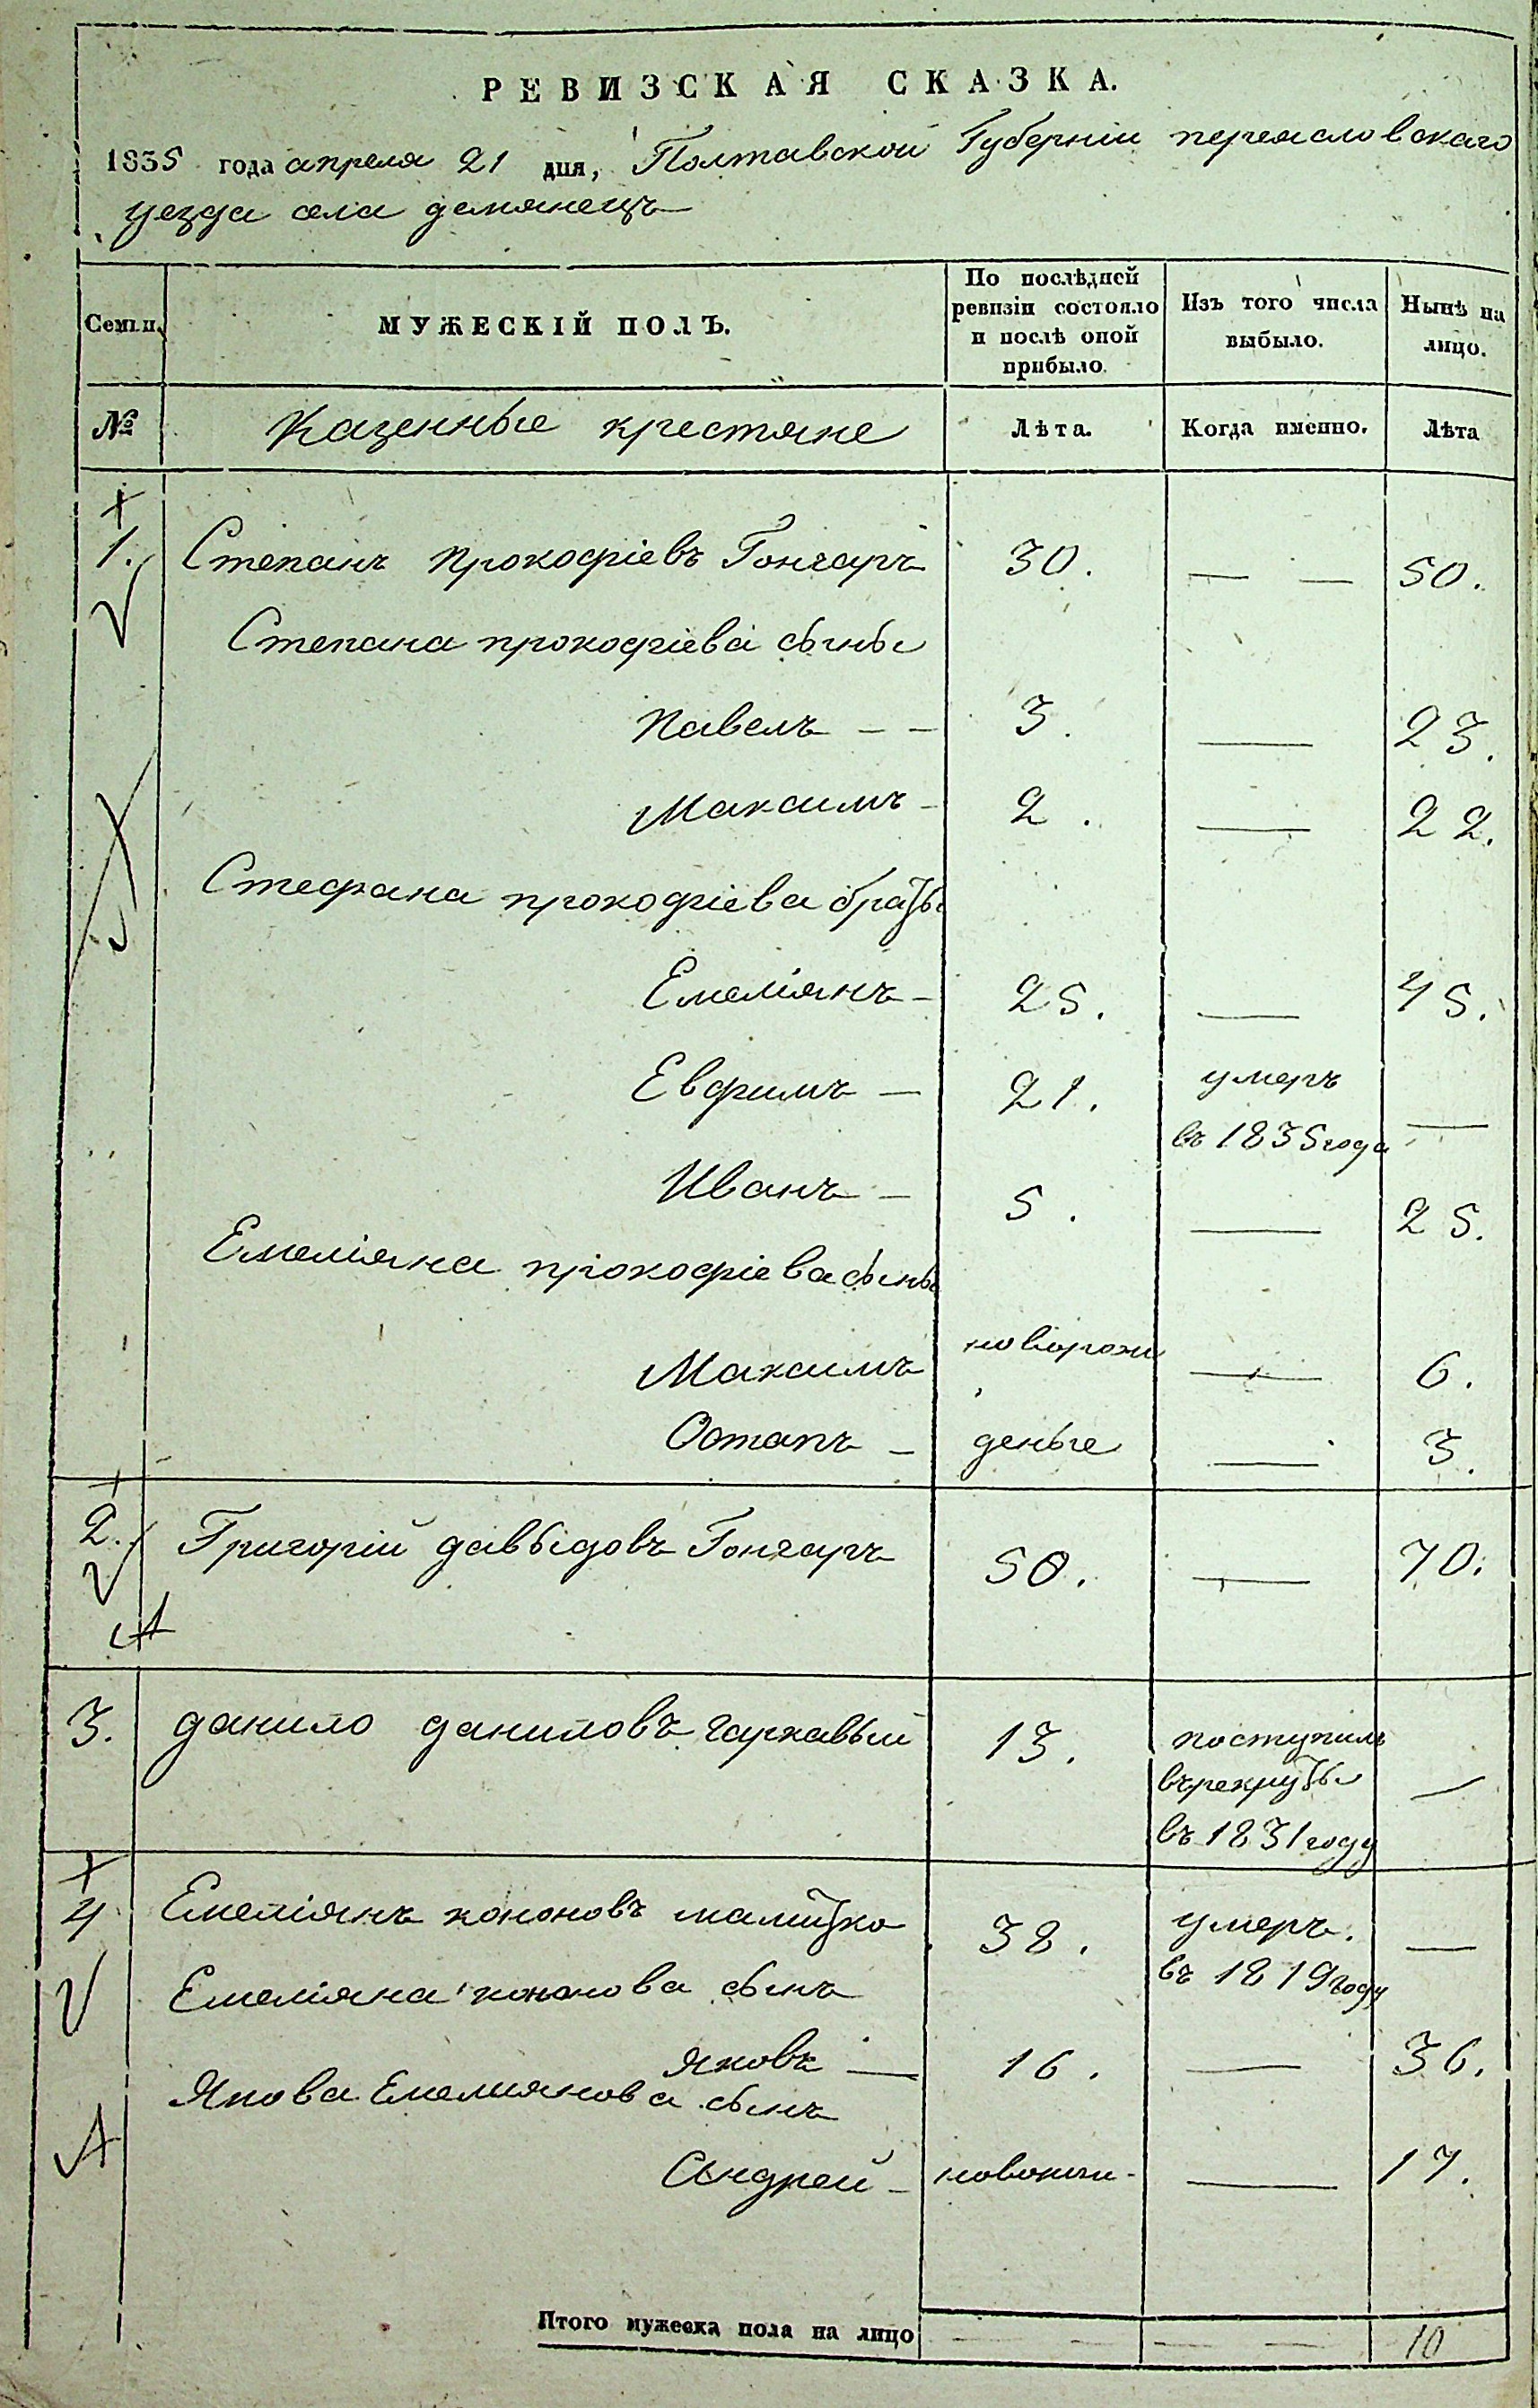 РЕВИЗСКАЯ СКАЗКА.
1835 года апреля 21 дня, Полтавской Губернїи переясловскаго
уезда села демянецъ
Семьи.
МУЖЕСКІЙ ПОЛЪ.
По послѣдней
ревизіи состояло
и послѣ оной
прибыло.
Изъ того числа
выбыло.
Нынѣ на
лицо.
№
Казенные крестяне
Лѣта.
Когда именно.
Лѣта
1. Степанъ Прокофіевъ Гончаръ 30. — — 50.
Степана прокофіева сыны
Павелъ — — 3. — 23.
Максимъ — 2. — 22.
Стефана прокофіева браты
Емеліянъ — 25. — 45.
Евфимъ — 21. умеръ
въ 1835 года —
Иванъ — 5. — 25.
Емеліяна прокофіева сыны
Максимъ новорож — 6.
Остапъ — деные — 3.
2. Григорій давыдовъ Гончаръ 50. — 70.
3. данило даниловъ гаркавый 13. поступилъ
въ рекруты —
въ 1831 году
4 Емеліянъ кононовъ мамитко 38. умеръ. —
въ 1819 году
Емеліяна кононова сынъ
Яковъ — 16. — 36.
Якова Емелиянова сынъ
Андрей — — 17.
Итого мужеска пола на лицо — — — — 10